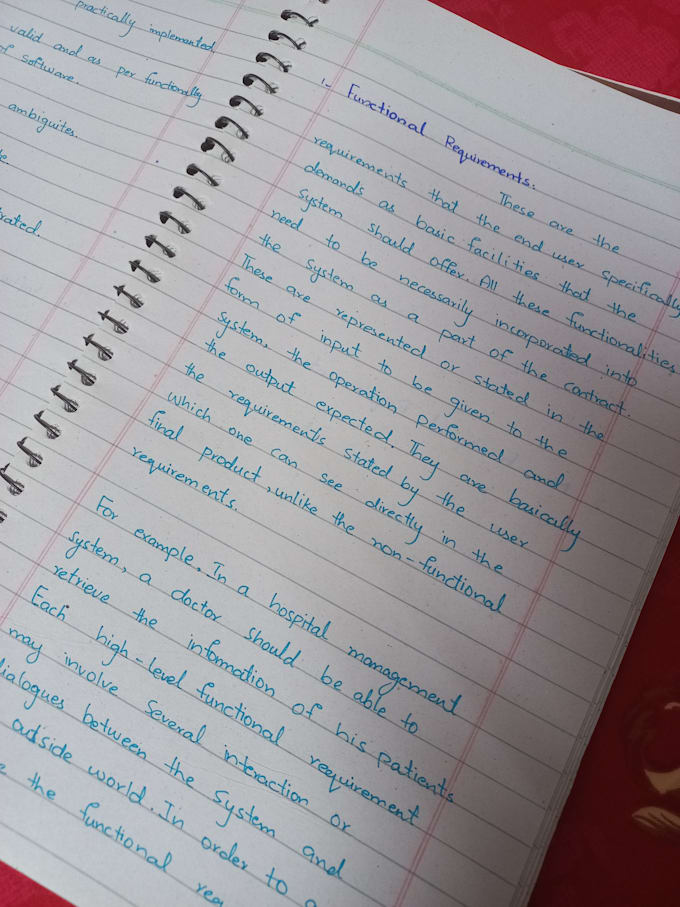 practically implemented
valid and as per functionally
of software.
ambiguites.
1- Functional Requirements:
These are the
requirements that the end user specifically
demands as basic facilities that the
system should offer. All these functionalities
need to be necessarily incorporated into
the system as a part of the contract.
These are represented or stated in the
form of input to be given to the
system, the operation performed and
the output expected. They are basically
the requirements stated by the user
which one can see directly in the
final product, unlike the non-functional
requirements.
For example, In a hospital management
system, a doctor should be able to
retrieve the information of his patients
Each high-level functional requirement
may involve several interaction or
dialogues between the system and
outside world. In order to
the functional req